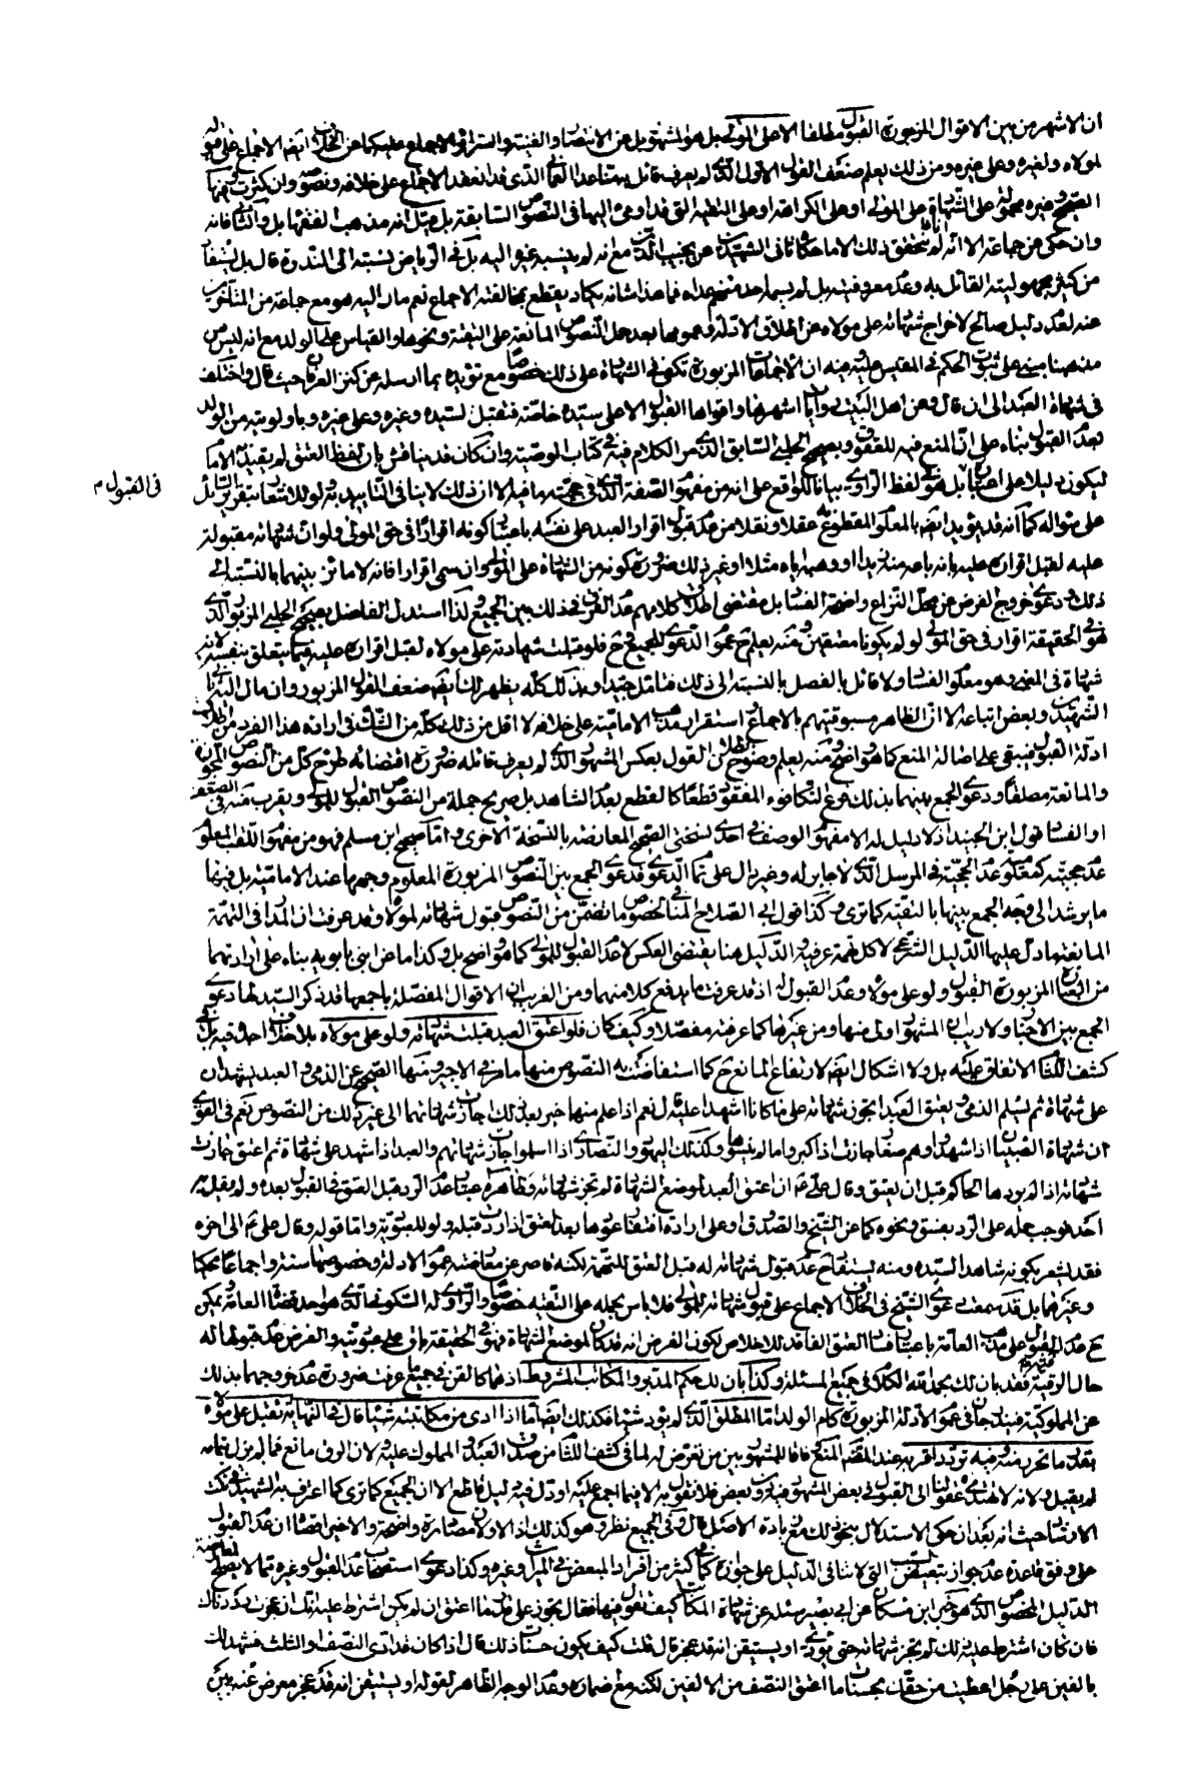 ان الاشهر من بين الاقوال المزبورة القبول مطلقا الا على المولى بل هو المشهور بل عن الانتصار والغنية والسرائر الاجماع عليه كما عن الخلاف ايضا الاجماع على قبوله
لمولاه ولغيره وعلى غيره ومن ذلك يعلم ضعف القول الاول الذى لم يعرف قائل به منا عدا العماني الذى قد انعقد الاجماع على خلافه ونصوصه وان كثرت وفيها
الصحيح وغيره محمولة على الشهادة على المولى او على الكراهة او على التقية التى قد اومئ اليها فى النصوص السابقة بل قيل انه مذهب لفقهائها بل والثانى فانه
وان حكى عن جماعة الا انه لم نتحقق ذلك الا ما حكاه ثانى الشهيدين عن نجيب الدين مع انه لم ينسبه غيره اليه بل فى الرياض نسبته الى الندرة قال بل يستفاد
من كثير مجهولية القائل به وعدم معروفيته بل لم يسمه احد منهم عداه فما هذا شانه يكاد يقطع بمخالفته الاجماع نعم مال اليه هو مع جماعة من المتأخرين
عنه لعدم دليل صالح لاخراج شهادته على مولاه عن اطلاق الادلة وعمومها بعد حمل النصوص المانعة على التقية ونحوها والقياس على الولد مع انه ليس من
مذهبنا مبنى على ثبوت الحكم فى المقيس عليه وفيه ان الاجماعات المزبورة تكفى فى الشهادة على ذلك خصوصا مع تؤيده بما ارسله عن كنز العرفان حيث قال واختلف
فى شهادة العبد الى ان قال وعن اهل البيت روايات اشهرها واقواها القبول الا على سيده خاصة فتقبل لسيده وغيره وعلى غيره وباولويته من الولد
بعدم القبول بناء على ان المنع فيه للعقوق وبصحيح الحلبى السابق الذى مر الكلام فيه فى كتاب الوصية وان كان قد يناقش بان لفظ العتق لم يقيد به الامام
ليكون دليلا على اعتباره بل هو فى لفظ الراوى بيانا للواقع على انه من مفهوم الصفة الذى فى حجيته ما فيه الا ان ذلك لا ينافى التأييد به ولو للاشعار بتقرير السائل
فى القبول م
على سؤاله كما انه قد يؤيد ايضا بالمعلوم المقطوع به عقلا ونقلا من عدم قبول اقرار العبد على نفسه باعتبار كونه اقرارا فى حق المولى فلو ان شهادته مقبولة
عليه لقبل اقراره عليه بانه باعه من زيد او وهبه اياه مثلا او غير ذلك ضرورة كونه من الشهادة على المولى وان سمى اقرارا فانه لا مائز بينهما بالنسبة الى
ذلك ودعوى خروج الفرض عن محل النزاع واضحة الفساد بل مقتضى اطلاق كلامهم عدم الفرق فى ذلك بين الجميع ولذا استدل الفاضل بصحيح الحلبى المزبور الذى
هو فى الحقيقة اقرار فى حق المولى لو لم يكونا معتقين ومنه يعلم عموم الدعوى للجميع وح فلو قبلت شهادته على مولاه لقبل اقراره عليه فيما يتعلق بنفسه لانه
شهادة فى المعنى وهو معلوم الفساد ولا قائل بالفصل بالنسبة الى ذلك فتامل جيدا وبذلك كله يظهر لك ايضا ضعف القول المزبور وان مال اليه ثانى
الشهيدين وبعض اتباعه الا ان الظاهر مسبوقيتهم بالاجماع او استقرار مذهب الامامية على خلافه لا اقل من ذلك كله من الشك فى ارادة هذا الفرد من اطلاق
ادلة القبول فيبقى على اصالة المنع كما هو واضح ومنه يعلم وضوح بطلان القول بعكس المشهور الذى لم يعرف قائله ضرورة اقتضائه طرح كل من النصوص المجوزة
والمانعة مطلقا ودعوى الجمع بينهما بذلك فرع التكافوء المفقود قطعا كالقطع بعدم الشاهد بل صريح جملة من النصوص القبول للمولى ويقرب منه فى الضعف
او الفساد قول ابن الجنيد اذ لا دليل له الا مفهوم الوصف فى احدى نسختى الصحيح المعارضة بالنسخة الاخرى واما صحيح ابن مسلم فهو من مفهوم اللقب المعلوم
عدم حجيته كمعلومية عدم الحجية فى المرسل الذى لا جابر له وغير دال على تمام الدعوى ودعوى الجمع بين النصوص المزبورة المعلوم وجهها عند الامامية بل فيها
ما يرشد الى وجه الجمع بينها بالتقية كما ترى وكذا قول ابى الصلاح المنافى لخصوص ما تضمن من النصوص قبول شهادته لمولاه وقد عرفت ان المدار فى التهمة
المانعة ما دل عليها الدليل الشرعى لا كل تهمة عرفية والدليل هنا يقتضى العكس لا عدم القبول للمولى كما هو واضح بل وكذا ما عن ابنى بابويه بناء على ارادتهما
من العبارة المزبورة القبول ولو على مولاه وعدم القبول له اذ قد عرفت ما يدفع كلا منهما ومن الغريب ان الاقوال المفصلة باجمعها قد ذكر السيد لها دعوى
الجمع بين الاخبار ولا ريب ان المشهور اولى منها ومن غيرها كما عرفته مفصلا وكيف كان فلو اعتق العبد قبلت شهادته ولو على مولاه بلا خلاف اجده فيه بل فى
كشف اللثام الاتفاق عليه بل ولا اشكال ايضا لارتفاع المانع ح كما استفاضت به النصوص منها ما مر فى الاجير ومنها الصحيح عن الذمى والعبد يشهدان
على شهادة ثم يسلم الذمى ويعتق العبد اتجوز شهادته على ما كانا اشهدا عليه قال نعم اذا علم منها خير بعد ذلك اجازت شهادتهما الى غير ذلك من النصوص نعم فى القوى
ان شهادة الصبيان اذا شهدوا وهم صغار جازت اذا كبروا ما لم ينسوها وكذلك اليهود والنصارى اذا اسلموا جازت شهادتهم والعبد اذا شهد على شهادة ثم اعتق جازت
شهادته اذا لم يردها الحاكم قبل ان يعتق وقال على ع ان اعتق العبد لموضع الشهادة لم تجز شهادته وظاهره اعتبار عدم الرد قبل العتق فى القبول بعده ولم يقل به
احد فوجب حمله على الرد بفسق ونحوه كما عن الشيخ والصدوق او على ارادة انتفاعه بها بعد العتق اذا ردت قبله ولو للعبودية واما قوله وقال على ع الى اخره
فقد اشعر بكونه شاهدا لسيده ومنه يستفاد عدم قبول شهادته له قبل العتق للتهمة لكنه قاصر عن مقاومة عموم الادلة وخصوصها سنة واجماعا محكيا
وغيرهما بل قد سمعت دعوى الشيخ فى الخلاف الاجماع على قبول شهادته للمولى فلا باس بحمله على التقية خصوصا والراوى له السكونى الذى هو احد قضاة العامة ويمكن
ح عدم القبول على مذهب العامة باعتبار فساد العتق الفاقد للاخلاص لكون الفرض انه قد كان لموضع الشهادة فهو فى الحقيقة باق على عبوديته والفرض عدم قبولها له
حال الرقية فقد بان لك بحمد الله الكلام فى جميع المسئلة وكذا بان لك حكم المدبر والمكاتب المشروط اذ هما كالقن فى جميع ما عرفت ضرورة عدم خروجهما بذلك
عن المملوكية فيندرجان فى عموم الادلة المزبورة كام الولد اما المطلق الذى لم يؤد شيئا فكذلك ايضا اما اذا ادى من مكاتبته شيئا قال فى النهاية تقبل على مولاه
بقدر ما تحرر منه وفيه تردد اقربه عند المصنف المنع وفاقا للمشهور بين من تعرض له لما فى كشف اللثام من صدق العبد والمملوك عليه لان الرق مانع فما لم يزل بتمامه
لم يقبل ولانه لا هتدى عقولنا الى القبول فى بعض المشهود به دون بعض فلا نقول به الا فيما اجمع عليه او دل فيه دليل قاطع الا ان الجميع كما ترى كما اعترف به الشهيد فى نكت
الارشاد حيث انه بعد ان حكى الاستدلال بنحو ذلك مع زيادة الاصل قال وفى الجميع نظر وهو كذلك اذ الاولان مصادرة واضحة والاخير اقتضاء ان عدم القبول
على وفق قاعدة عدم جواز تبعيض السبب التى لا تنافى الدليل على جوازه كما فى كثير من افراد المبعض فى الميراث وغيره وكذا دعوى استصحاب عدم القبول وغيره مما لا يصلح لمعارضة
الدليل المخصوص الذى هو خبر ابن مسكان عن ابى بصير سئله عن شهادة المكاتب كيف تقول فيها فقال تجوز على قدر ما اعتق ان لم يكن اشترط عليه انك ان عجزت رددناك
فان كان اشترط عليه ذلك لم تجز شهادته حتى يؤدى او يستيقن انه قد عجز قال قلت كيف يكون حساب ذلك قال اذا كان قد ادى النصف او الثلث فشهد لك
بالفين على رجل اعطيت من حقك بحساب ما اعتق النصف من الالفين لكنه مع ضماره وعدم الوجه الظاهر لقوله او يستيقن انه قد عجز معرض عنه بين